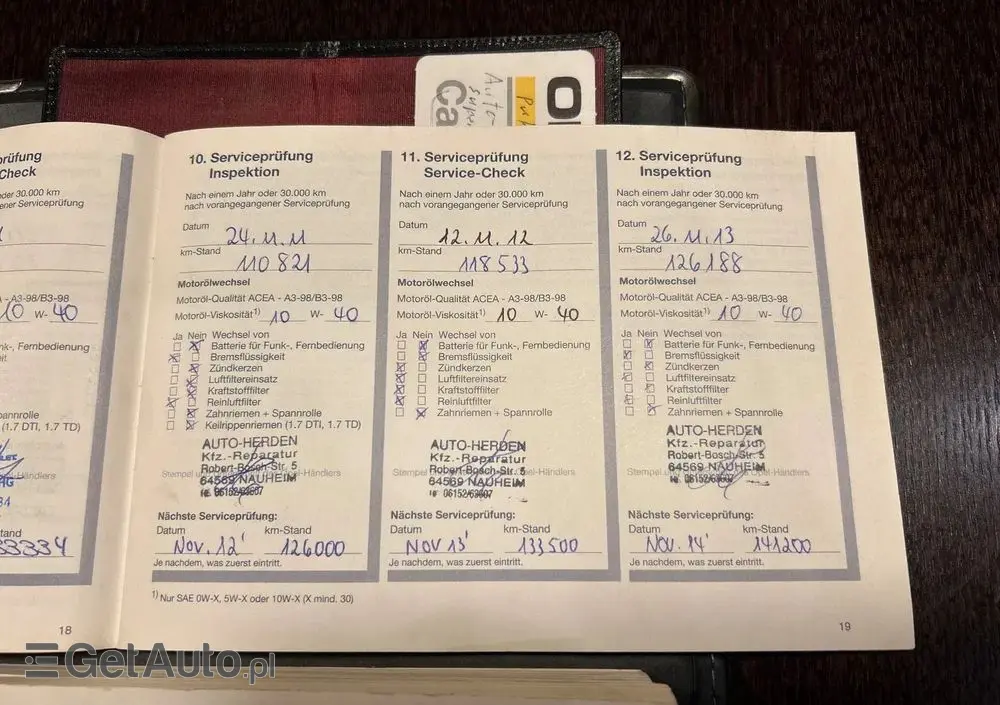 O
Auto-
Ca
rüfung
Check
oder 30.000 km
ener Serviceprüfung
A - A3-98/B3-98
10 W- 40
nk-, Fernbedienung
pannrolle
(1.7 DTI, 1.7 TD)
tand
33334
18
10. Serviceprüfung
Inspektion
Nach einem Jahr oder 30.000 km
nach vorangegangener Serviceprüfung
Datum 24.11.11
km-Stand 110 821
Motorölwechsel
Motoröl-Qualität ACEA - A3-98/B3-98
Motoröl-Viskosität1) 10 W- 40
Ja Nein Wechsel von
Batterie für Funk-, Fernbedienung
Bremsflüssigkeit
Zündkerzen
Luftfiltereinsatz
Kraftstofffilter
Reinluftfilter
Zahnriemen + Spannrolle
Keilrippenriemen (1.7 DTI, 1.7 TD)
AUTO-HERDEN
Kfz.-Reparatur
Robert-Bosch-Str. 5
Stempel Opel-Händlers
64569 NAUHEIM
Nächste Serviceprüfung:
Datum km-Stand
Nov. 12' 126000
Je nachdem, was zuerst eintritt.
1) Nur SAE 0W-X, 5W-X oder 10W-X (X mind. 30)
11. Serviceprüfung
Service-Check
Nach einem Jahr oder 30.000 km
nach vorangegangener Serviceprüfung
Datum 12.11.12
km-Stand 118 533
Motorölwechsel
Motoröl-Qualität ACEA - A3-98/B3-98
Motoröl-Viskosität1) 10 W- 40
Ja Nein Wechsel von
Batterie für Funk-, Fernbedienung
Bremsflüssigkeit
Zündkerzen
Luftfiltereinsatz
Kraftstofffilter
Reinluftfilter
Zahnriemen + Spannrolle
AUTO-HERDEN
Kfz.-Reparatur
Robert-Bosch-Str. 5
Stempel Opel-Händlers
64569 NAUHEIM
Nächste Serviceprüfung:
Datum km-Stand
Nov 13' 133500
Je nachdem, was zuerst eintritt.
12. Serviceprüfung
Inspektion
Nach einem Jahr oder 30.000 km
nach vorangegangener Serviceprüfung
Datum 26.11.13
km-Stand 126188
Motorölwechsel
Motoröl-Qualität ACEA - A3-98/B3-98
Motoröl-Viskosität1) 10 W- 40
Ja Nein Wechsel von
Batterie für Funk-, Fernbedienung
Bremsflüssigkeit
Zündkerzen
Luftfiltereinsatz
Kraftstofffilter
Reinluftfilter
Zahnriemen + Spannrolle
AUTO-HERDEN
Kfz.-Reparatur
Robert-Bosch-Str. 5
Stempel Opel-Händlers
64569 NAUHEIM
Nächste Serviceprüfung:
Datum km-Stand
Nov. 14' 141200
Je nachdem, was zuerst eintritt.
19
GetAuto.pl